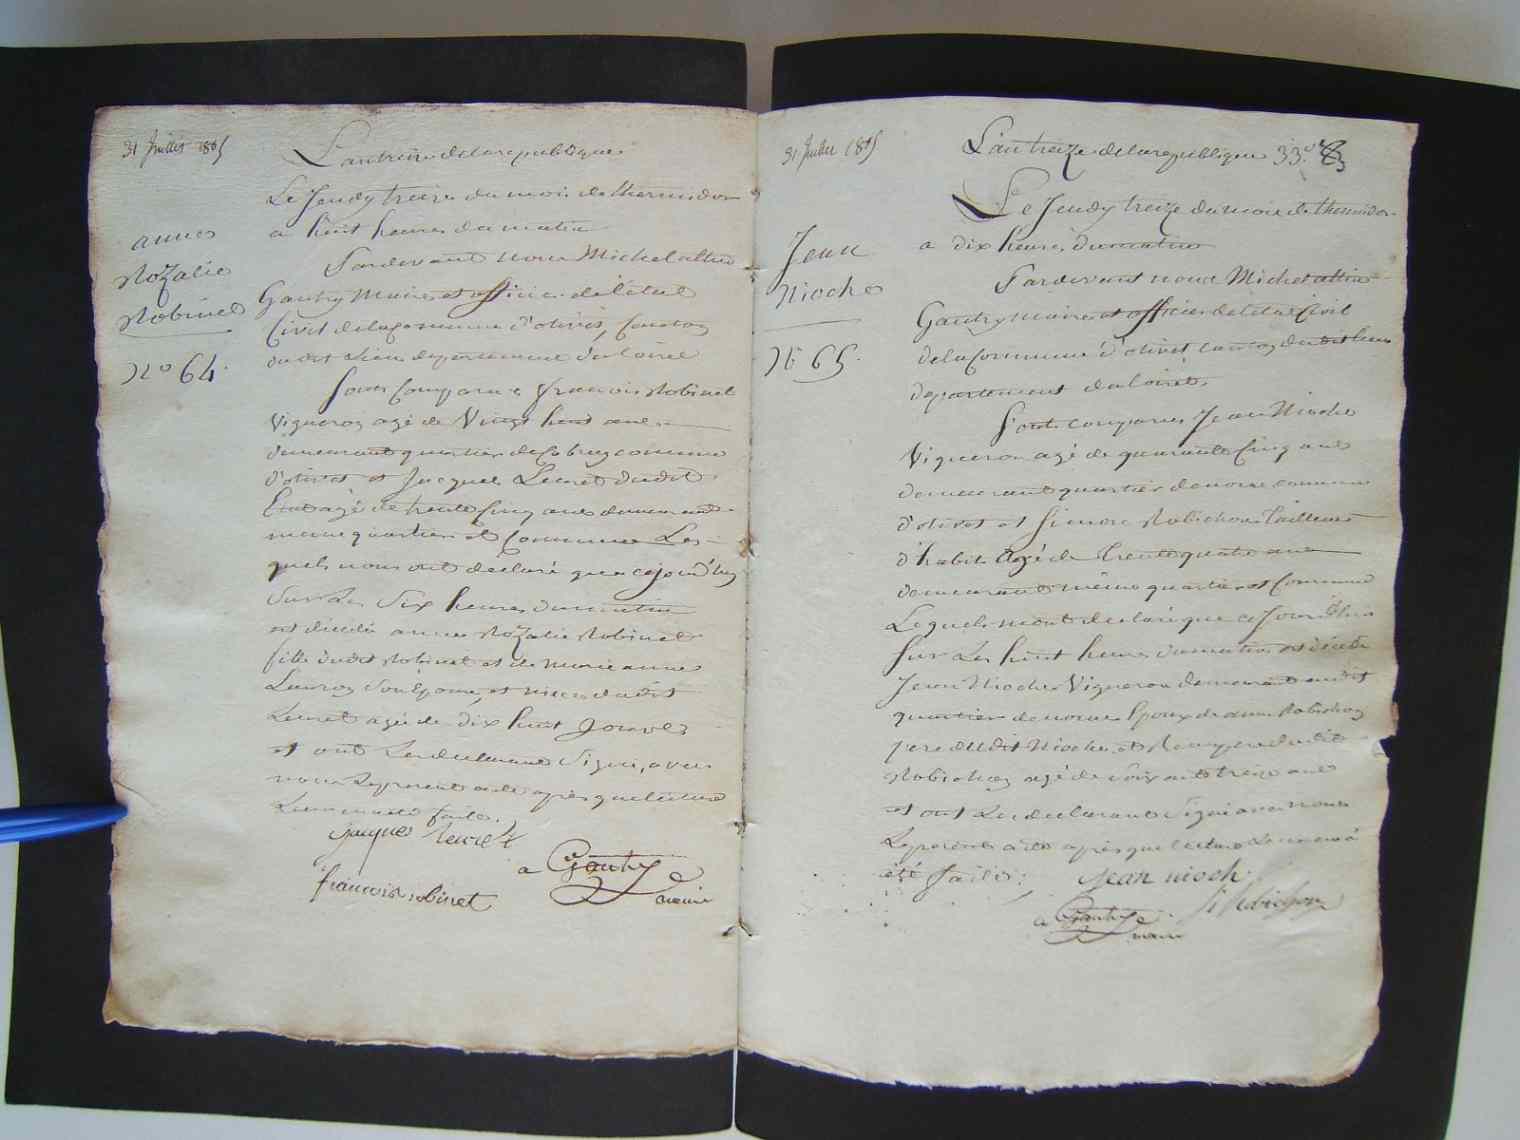 31 Juillet 1805
L'an treize de la republique
Le Jeudy treize du mois de thermidor
a huit heures du matin
anne
Rozalie
Robinet
No 64.
Pardevant nous Michel
Gautry Maire et officier de l'etat
Civil de la Commune d'olivet, Canton
dudit Lieu departement du Loiret
Sont Comparus francois Robinet
Vigneron agé de Vingt huit ans
demeurant quartier de commune
d'olivet et Jacques Leuret dudit
agé de trente Cinq ans demeurant
meme quartier et Commune Les-
quels nous ont declaré que cejourd'huy
Sur Les Six heures du matin
est decedée anne Rozalie Robinet
fille dudit Robinet et de Marie anne
Son Epouse, et niece dudit
Leuret agée de dix huit Jours
et ont Les declarant Signé, avec
nous Le present acte apres que lecture
Leur en a été faite.
jacques leuret
francois robinet
a Gautry
maire
31 Juillet 1805
L'an treize de la republique 33.
Le Jeudy treize du mois de thermidor
a dix heures du matin
Jean
Nioche
No 65.
Pardevant nous Michel
Gautry Maire et officier de l'etat Civil
de la Commune d'olivet Canton dudit Lieu
departement du Loiret.
Sont comparus Jean Nioche
Vigneron agé de quarante Cinq ans
demeurant quartier de commune
d'olivet et Simon Robichon tailleur
d'habit agé de trente quatre ans
demeurant même quartier et Commune
Lequels nous ont declaré que ce Jourd'hui
Sur Les huit heures du matin est decedé
Jean Nioche Vigneron demeurant audit
quartier de Epoux de anne Robichon
pere dudit Nioche et dudit
Robichon agé de Soixante treize ans
et ont Les declarant Signé avec nous
Le present acte apres que lecture Leur en a
été faite.
jean nioch
Si Robichon
a Gautry
maire